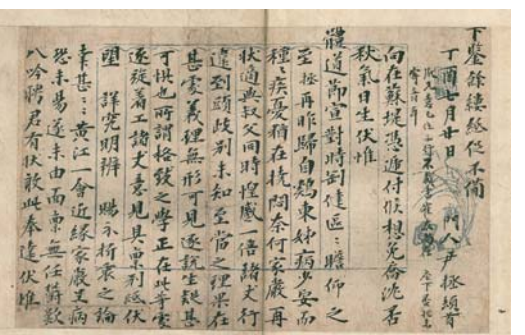 下鑒餘縷縷從不備
丁酉七月廿日 門人尹拯頓首
向在蘇堤憑遞付候想免喬沈否
秋氣日生伏惟
體道節宣對時剛健區〻瞻仰之
至拯再昨歸自鵝東姊病少安而
種〻疾憂猶在撓悶奈何家嚴再
狀適與叔父同時惶感一倍諸丈行
違到頭歧別未知至當之理果在
甚處義理無形可見逐說生疑甚
可懼也所謂格致之學正在此等處
逐旋着工諸丈意見具稟別紙伏
望 詳究明辨 賜示折衷之論
幸甚〻〻黃江一會近緣家嚴呈病
恐未易遂未由面稟無任鬱歎
八吟騁君有狀敢此奉達伏惟